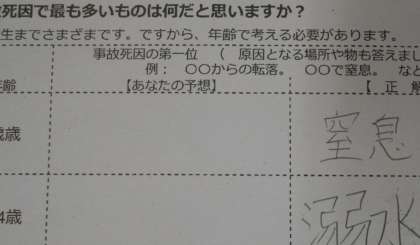 死因で最も多いものは何だと思いますか？
生までさまざまです。ですから、年齢で考える必要があります。
事故死因の第一位 （ 原因となる場所や物も答えまし
例： 〇〇からの転落。 〇〇で窒息。 な
年齢 【あなたの予想】 【 正 解
歳 窒息
4歳 溺水